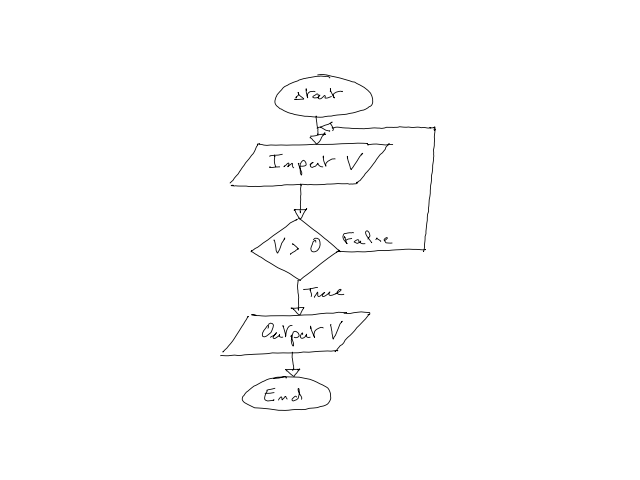 Start
Input V
V > 0
False
True
Output V
End